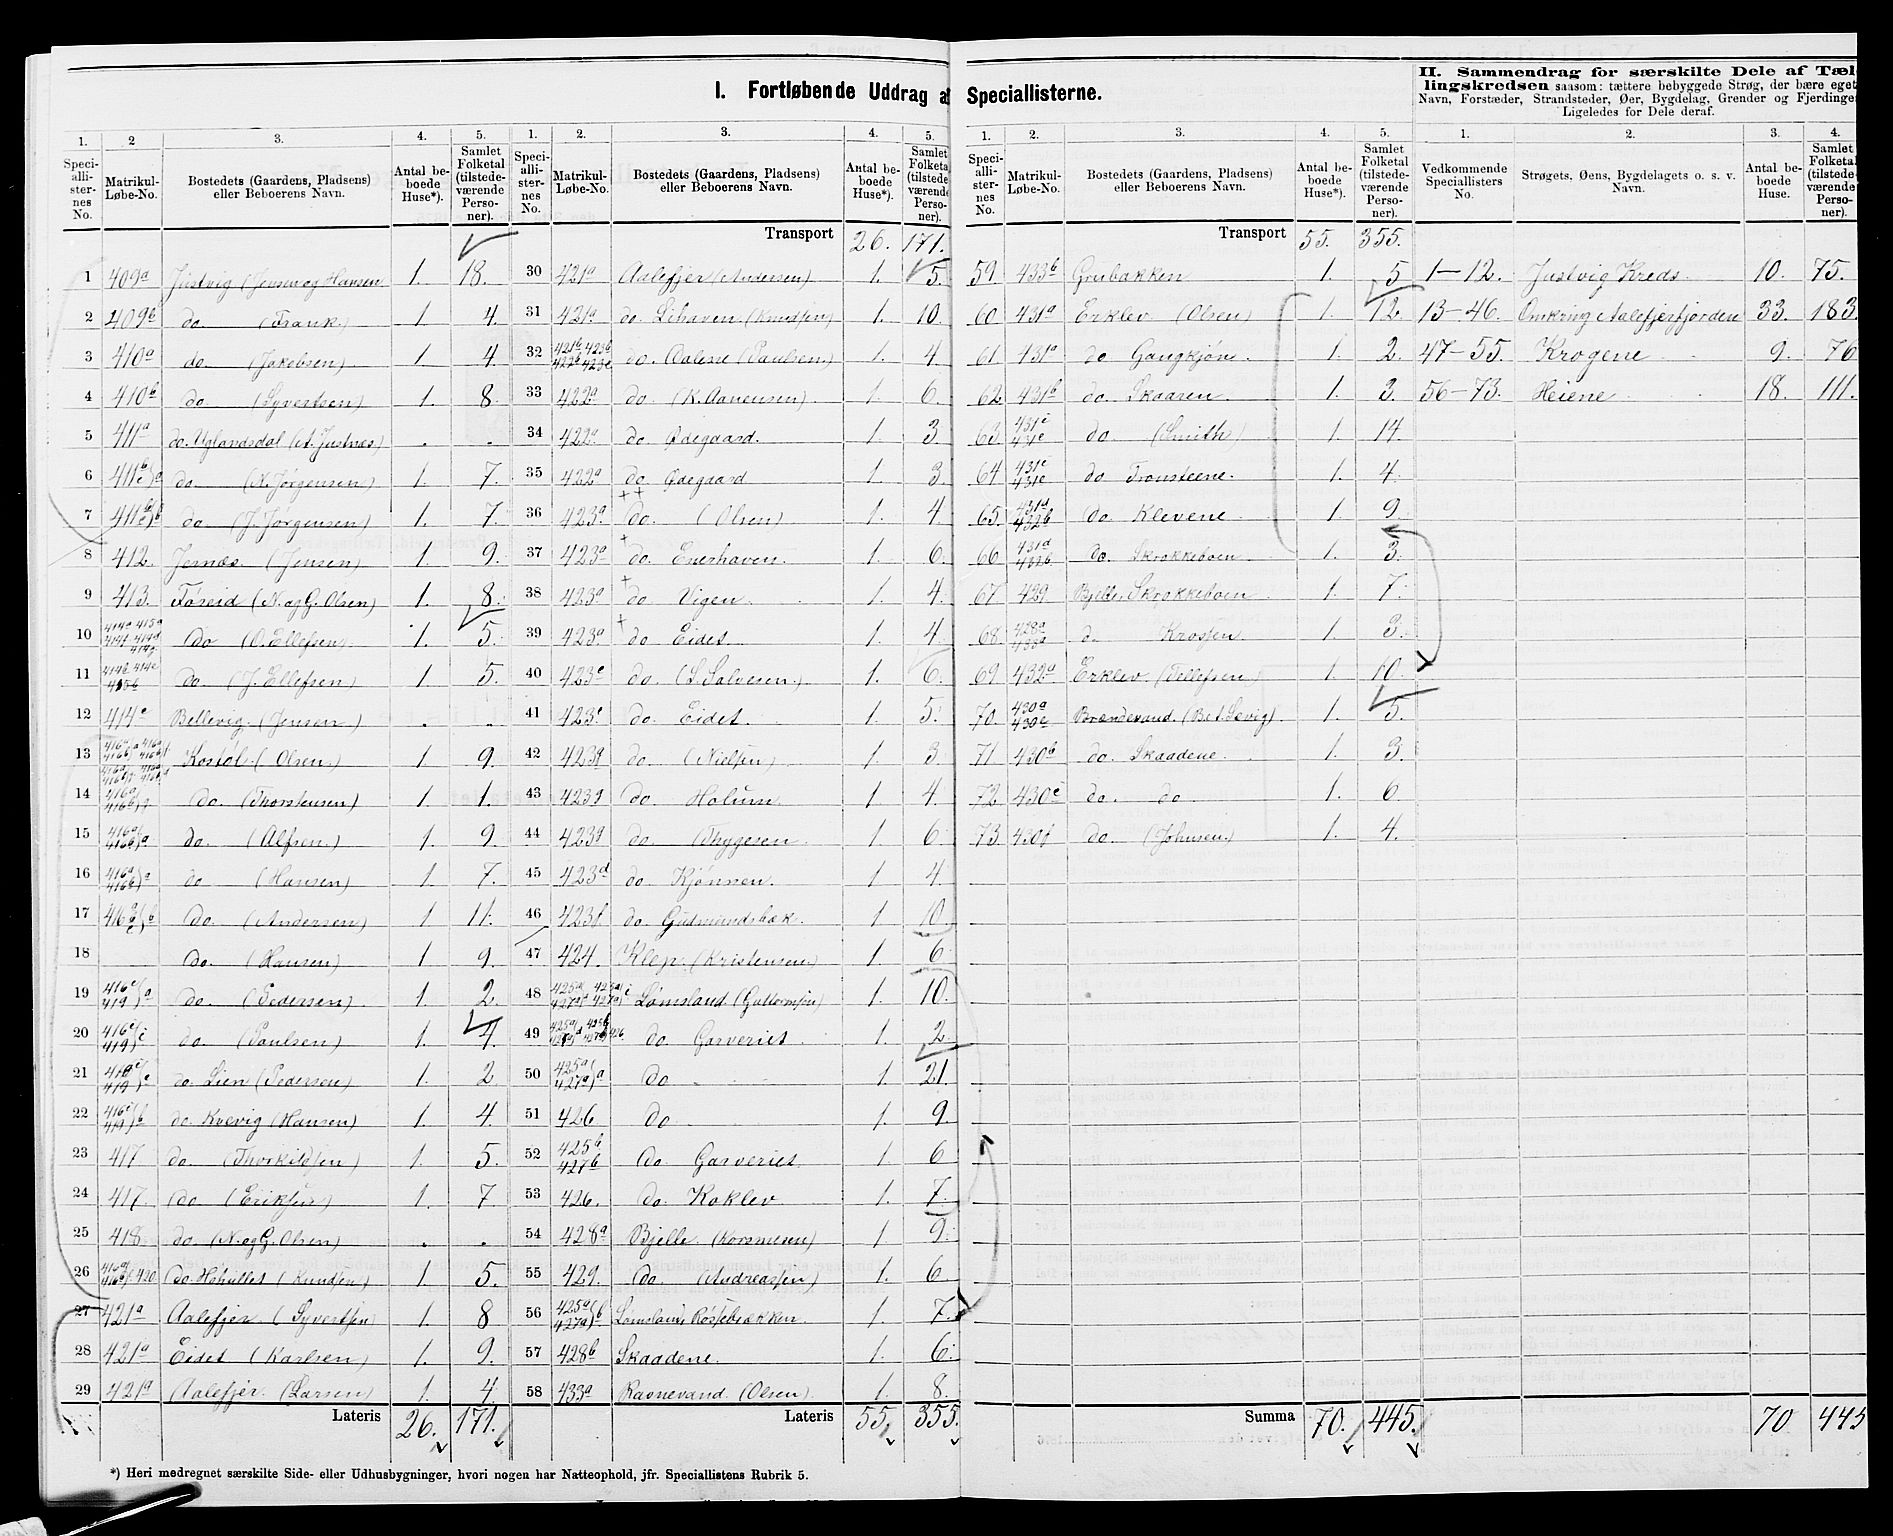 I. Fortløbende Uddrag af Speciallisterne.
1. Speciallisternes No. | 2 Matrikul-Løbe-No. | 3. Bostedets (Gaardens, Pladsens) eller Beboerens Navn. | 4. Antal beboede Huse*). | 5. Samlet Folketal (tilstedeværende Personer).
1 | 409a | Justvig (Jensen og Hansen | 1. | 18.
2 | 409b | do. (Frank.) | 1. | 4.
3 | 410a | do (Jakobsen) | 1. | 4
4 | 410b | do (Syvertsen) | 1. | 8.
5 | 411a | do. Uglandsdal (A. Justnæs) | . | .
6 | do (N. Jørgensen) | 1. | 7.
7 | do (J. Jørgensen) | 1. | 7.
8 | 412. | Jernæs (Jensen) | 1. | 9.
9 | 413. | Føreid (N. og G. Olsen) | 1. | 8.
10 | do (O. Ellefsen) | 1. | 5.
11 | do (J. Ellefsen) | 1. | 5.
12 | 414e | Bellevig (Jensen) | . | .
13 | Kostøl (Olsen) | 1. | 9.
14 | do. (Thorstensen) | 1. | 1.
15 | do. (Alfsen.) | 1. | 9.
16 | do (Hansen) | 1. | 7.
17 | do. (Andersen) | 1 | 11.
18 | do. (Hansen) | 1 | 9.
19 | do. (Pedersen) | 1 | 2.
20 | do. (Paulsen) | 1. | 4.
21 | do. Lien (Pedersen) | 1. | 2
22 | do. Kvevig (Hansen) | 1. | 4.
23 | 417 | do. (Thorkildsen) | 1. | 5.
24 | 417. | do (Eriksen) | 1. | 7.
25 | 418. | do. (N. og G. Olsen) | . | .
26 | do. (Knudsen) | 1. | 5.
27 | 421a | Aalefjer (Syvertsen) | 1. | 8
28 | 421a | Eidet (Karlsen) | 1. | 9.
29 | 421a | Aalefjer. (Larsen) | 1. | 4.
Lateris | 26. | 171.
*) Heri medregnet særskilte Side- eller Udhusbygninger, hvori nogen har Natteophold, jfr. Speciallistens Rubrik 5.
1. Speciallisternes No. | 2. Matrikul-Løbe-No. | 3. Bostedets (Gaardens, Pladsens) eller Beboerens Navn. | 4. Antal beboede Huse*). | 5. Samlet Folketal (tilstedeværende Personer).
Transport | 26. | 171.
30 | 421a | Aalefjer (Andersen) | 1. | 5.
31 | 421a | do. Lihaven. (Knudsen) | 1. | 10.
32 | 421b 423b 422b 423c | do. Aalene (Paulsen) | 1. | 4.
33 | 422a | do (K. Aanensen) | 1. | 6.
34 | 422a | do Ødegaard. | 1. | 3
35 | 422a | do Ødegaard | 1. | 3
36 | 423a | do. (Olsen) | 1. | 4.
37 | 423a | do. Enerhaven. | 1. | 6.
38 | 423a | do Vigen | 1. | 4.
39 | 423a | do Eidet | 1. | 4.
40 | 423e | do. (S. Salvesen.) | 1. | 6.
41 | 423e | do. Eidet. | 1. | 5.
42 | 423g | do (Nielsen) | 1. | 3
43 | 423g | do. Holum. | 1. | 4.
44 | 423g | do (Thygesen | 1. | 6.
45 | 423d | do. Kjønnen. | 1 | 4.
46 | 423f | do Gudmundsbæk. | 1 | 10.
47 | 424. | Klep. (Kristensen) | 1. | 6.
48 | Lømsland (Guttormsen) | 1. | 10.
49 | do. Garveriet | 1. | 2.
50 | do | 1. | 21.
51 | 426 | do | 1. | 9.
52 | 425b 427b | do Garveriet. | 1. | 6
53 | 426. | do. Koklev | 1. | 7.
54 | 428a | Bjelle (Korsmesen) | 1. | 9.
55 | 429. | do. (Andreassen) | 1. | 6.
56 | Lømsland, Rossebækken | 1. | 7.
57 | 428b | Skaadene. | 1. | 6.
58 | 433a | Ravnevand (Olsen) | 1. | 8.
Lateris | 55. | 355.
1. Speciallisternes No. | 2. Matrikul-Løbe-No. | 3. Bostedets (Gaardens, Pladsens) eller Beboerens Navn. | 4. Antal beboede Huse*). | 5. Samlet Folketal (tilstedeværende Personer).
Transport | 55. | 355.
59. | 433b | Grubakken | 1. | 5
60 | 431a | Erklev (Olsen) | 1. | 12.
61 | 431a | do Gangkjøn. | 1. | 2.
62 | 431b | do. Skaaren | 1. | 3.
63 | do (Smith) | 1. | 14.
64 | do Tronsteene. | 1. | 4.
65. | 431d 432b | do Klevene | 1. | 9.
66 | 431d 432b | do. Skrokkeboen | 1. | 3.
67 | 429 | Bjelle, Skrokkeboen | 1. | 7.
68. | 1. | 3.
69 | 432a | Erklev. (Tellefsen) | 1. | 10.
70. | 1. | 5.
71 | 430b | do. Skaadene. | 1. | 3.
72 | 430e | do. do | 1. | 6.
73. | 430f | do (Johnsen) | 1. | 4.
Summa | 70. | 445.
II. Sammendrag for særskilte Dele af Tællingskredsen saasom: tættere bebyggede Strøg, der bære eget Navn, Forstæder, Strandsteder, Øer, Bygdelag, Grender og Fjerdinger. Ligeledes for Dele deraf.
1. Vedkommende Speciallisters No. | 2. Strøgets, Øens, Bygdelagets o. s. v. Navn. | 3. Antal beboede Huse. | 4. Samlet Folketal (tilstedeværende Personer).
1—12. | Justvig Kreds. | 10. | 75.
13—46. | Omkring Aalefjerfjorden | 33. | 183.
47—55. | Krogene | 9. | 76
56—73. | Heiene | 18. | 111.
70 | 445